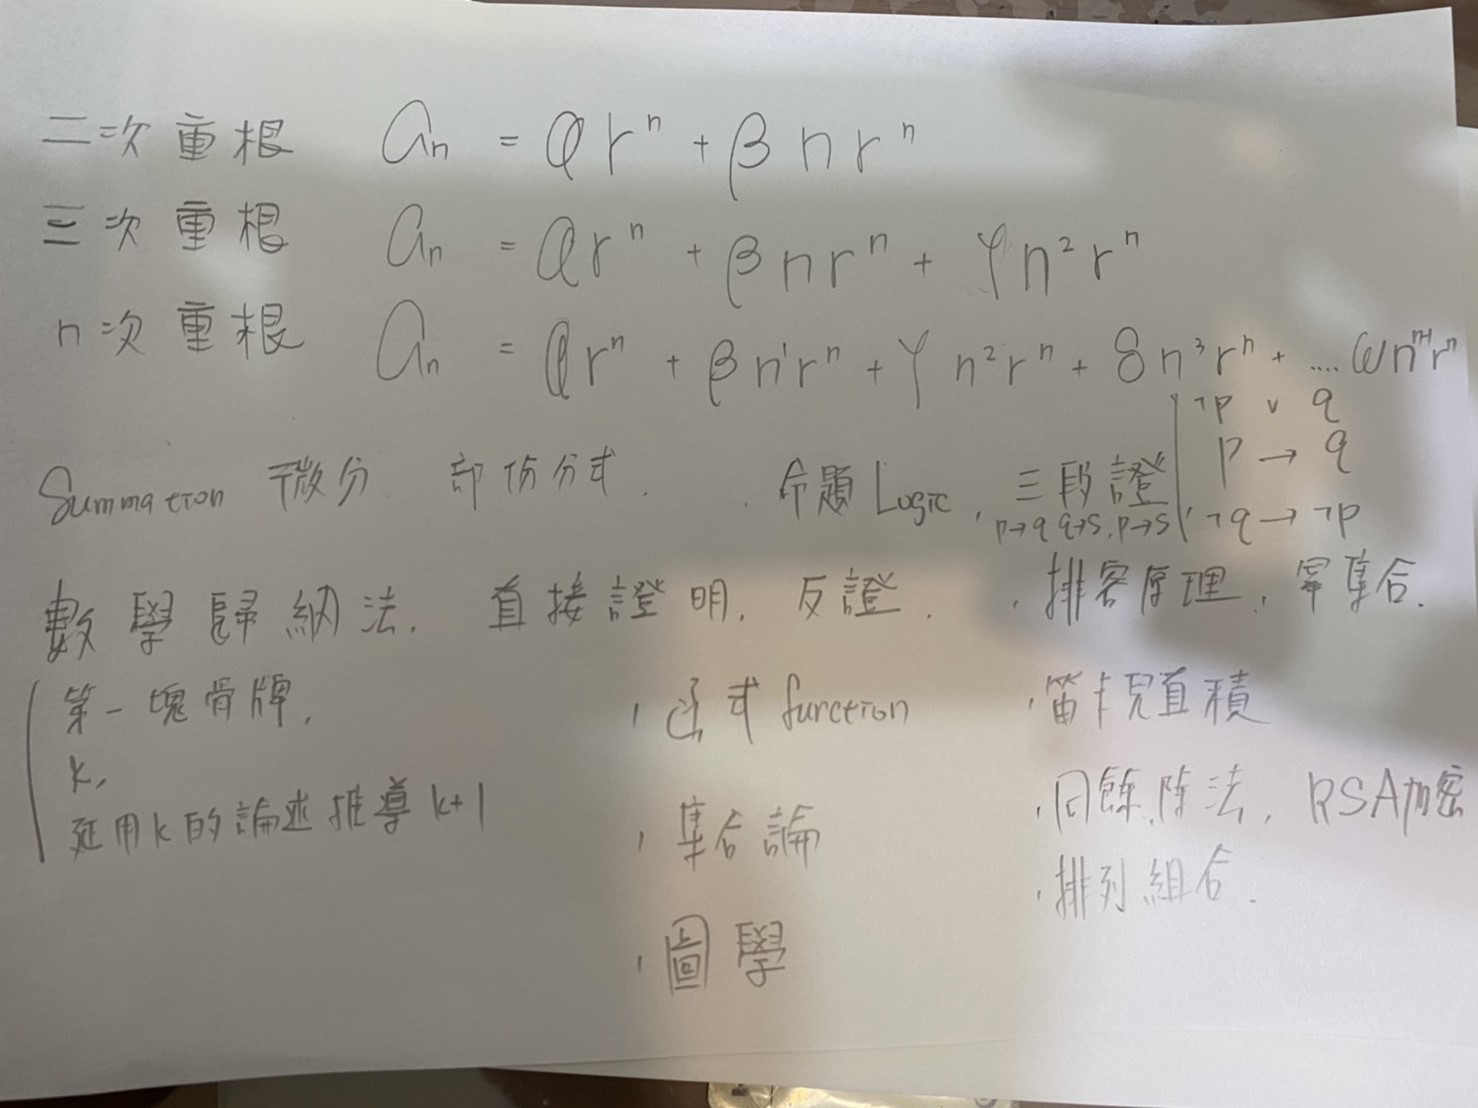 二次重根 aₙ = αrⁿ + βnrⁿ
三次重根 aₙ = αrⁿ + βnrⁿ + γn²rⁿ
n次重根 aₙ = αrⁿ + βn¹rⁿ + γn²rⁿ + δn³rⁿ + .... ωnⁿ⁻¹rⁿ
Summation 微分 部份分式. 命題Logic, 三段證
p→q q→s, p→s
¬p ∨ q
p → q
¬q → ¬p
數學歸納法. 直接證明. 反證.
第一塊骨牌,
k,
延用k的論述推導k+1
函式function
集合論
圖學
排容原理, 冪集合.
笛卡兒直積
同餘除法, RSA加密
排列組合.